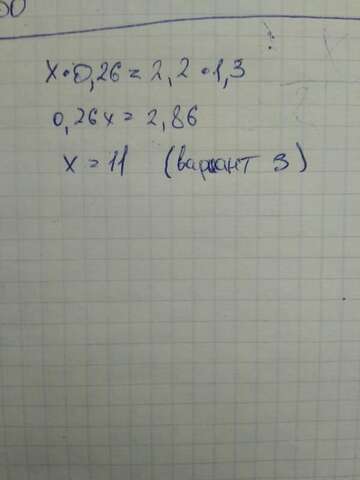 50
x·0,26=2,2·1,3
0,26x=2,86
x=11 (вариант 3)